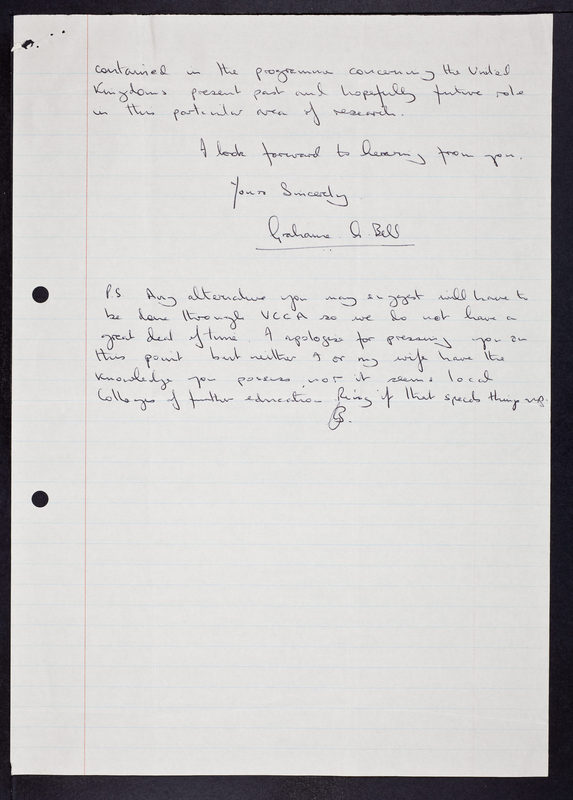 contained in the programme concerning the United
Kingdoms present past and hopefully future role
in this particular area of research.
I look forward to hearing from you.
Yours Sincerely
Grahame G. Bell
PS Any alternative you may suggest will have to
be done through UCCA so we do not have a
great deal of time. I apologise for pressing you on
this point but neither I or my wife have the
knowledge you possess, nor it seems local
Colleges of further education Ring if that speeds things up.